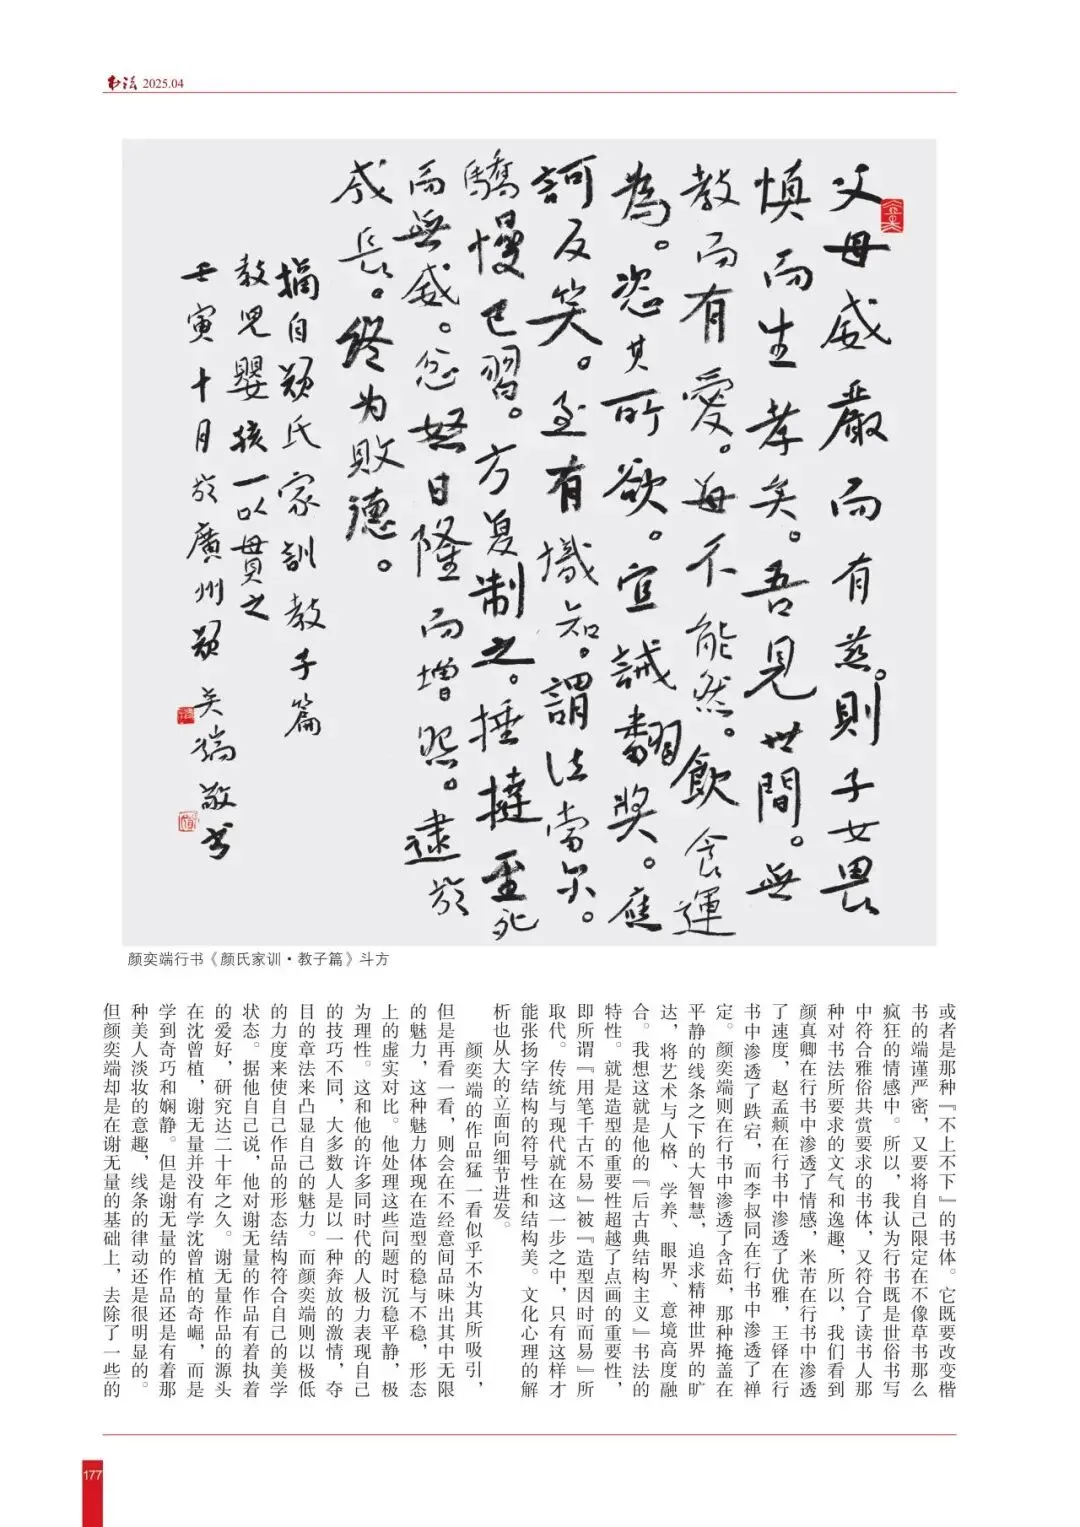 书法 2025.04
父母威嚴而有慈。則子女畏
慎而生孝矣。吾見世間。無
教而有愛。每不能然。飲食運
為。恣其所欲。宜誡翻奬。應
訶反笑。至有識知。謂法當尔。
驕慢已習。方复制之。捶撻至死
而無威。忿怒日隆而增怨。逮於
成長。終为敗德。
摘自颜氏家訓教子篇
教児嬰孩一以貫之
壬寅十月於廣州颜奕端敬书
颜奕端行书《颜氏家训·教子篇》斗方
或者是那种『不上不下』的书体。它既要改变楷
书的端谨严密，又要将自己限定在不像草书那么
疯狂的情感中。所以，我认为行书既是世俗书写
中符合雅俗共赏要求的书体，又符合了读书人那
种对书法所要求的文气和逸趣，所以，我们看到
颜真卿在行书中渗透了情感，米芾在行书中渗透
了速度，赵孟頫在行书中渗透了优雅，王铎在行
书中渗透了跌宕，而李叔同在行书中渗透了禅
定。颜奕端则在行书中渗透了含茹，那种掩盖在
平静的线条之下的大智慧，追求精神世界的旷
达，将艺术与人格、学养、眼界、意境高度融
合。我想这就是他的『后古典结构主义』书法的
特性。就是造型的重要性超越了点画的重要性，
即所谓『用笔千古不易』被『造型因时而易』所
取代。传统与现代就在这一步之中，只有这样才
能张扬字结构的符号性和结构美。文化心理的解
析也从大的立面向细节进发。
颜奕端的作品猛一看似乎不为其所吸引，
但是再看一看，则会在不经意间品味出其中无限
的魅力，这种魅力体现在造型的稳与不稳，形态
上的虚实对比。他处理这些问题时沉稳平静，极
为理性。这和他的许多同时代的人极力表现自己
的技巧不同，大多数人是以一种奔放的激情，夺
目的章法来凸显自己的魅力。而颜奕端则以极低
的力度来使自己作品的形态结构符合自己的美学
状态。据他自己说，他对谢无量的作品有着执着
的爱好，研究达二十年之久。谢无量作品的源头
在沈曾植，谢无量并没有学沈曾植的奇崛，而是
学到奇巧和娴静。但是谢无量的作品还是有着那
种美人淡妆的意趣，线条的律动还是很明显的。
但颜奕端却是在谢无量的基础上，去除了一些的
177